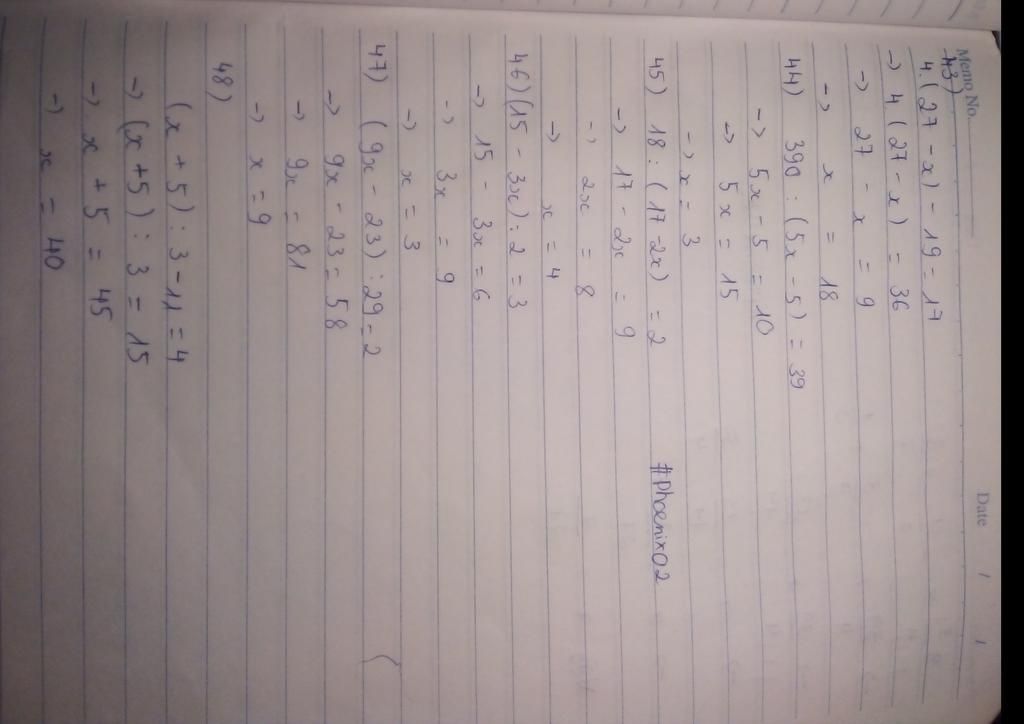 Memo No.
Date / /
43)
4.(27 - x) - 19 = 17
-> 4 (27 - x) = 36
-> 27 - x = 9
-> x = 18
44) 390 : (5x - 5) = 39
-> 5x - 5 = 10
-> 5x = 15
-> x = 3
45) 18 : (17 - 2x) = 2 #Phoenix02
-> 17 - 2x = 9
-> 2x = 8
-> x = 4
46) (15 - 3x) : 2 = 3
-> 15 - 3x = 6
-> 3x = 9
-> x = 3
47) (9x - 23) : 29 = 2
-> 9x - 23 = 58
-> 9x = 81
-> x = 9
48)
(x + 5) : 3 - 11 = 4
-> (x + 5) : 3 = 15
-> x + 5 = 45
-> x = 40